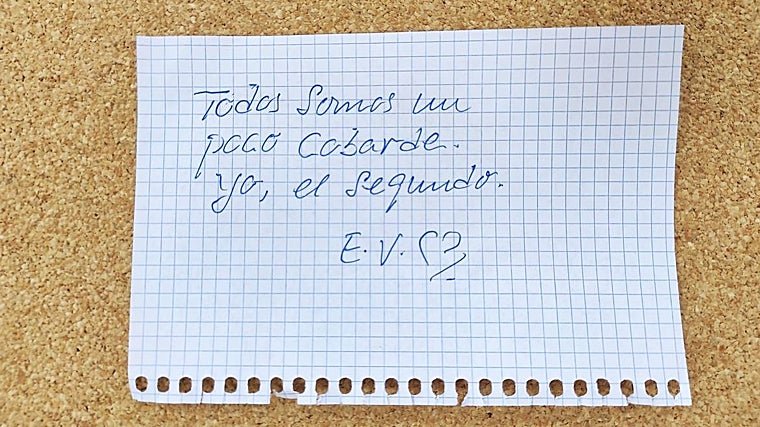 Todos somos un
poco cobarde.
yo, el segundo.
E.V.